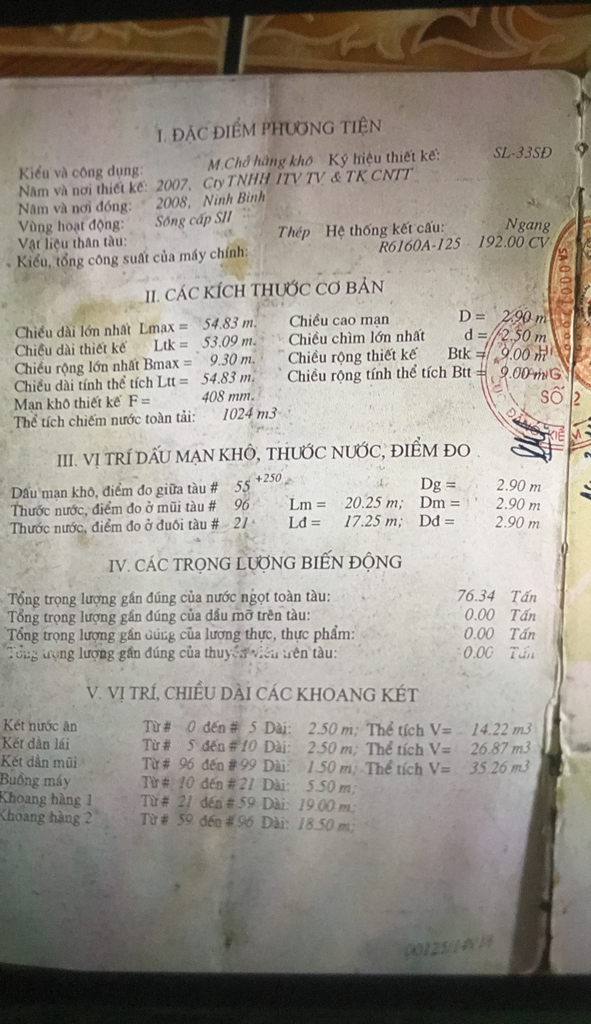 I. ĐẶC ĐIỂM PHƯƠNG TIỆN
Kiểu và công dụng: M.Chở hàng khô Ký hiệu thiết kế: SL-33SĐ
Năm và nơi thiết kế: 2007, Cty TNHH ITV TV & TK CNTT
Năm và nơi đóng: 2008, Ninh Bình
Vùng hoạt động: Sông cấp SII
Vật liệu thân tàu: Thép Hệ thống kết cấu: Ngang
Kiểu, tổng công suất của máy chính: R6160A-125 192.00 CV
II. CÁC KÍCH THƯỚC CƠ BẢN
Chiều dài lớn nhất Lmax = 54.83 m. Chiều cao mạn D = 2.90 m
Chiều dài thiết kế Ltk = 53.09 m. Chiều chìm lớn nhất d = 2.50 m
Chiều rộng lớn nhất Bmax = 9.30 m. Chiều rộng thiết kế Btk = 9.00 m
Chiều dài tính thể tích Ltt = 54.83 m. Chiều rộng tính thể tích Btt = 9.00 m
Mạn khô thiết kế F = 408 mm.
Thể tích chiếm nước toàn tải: 1024 m3
SỐ 2
III. VỊ TRÍ DẤU MẠN KHÔ, THƯỚC NƯỚC, ĐIỂM ĐO
Dấu mạn khô, điểm đo giữa tàu # 55 +250 Dg = 2.90 m
Thước nước, điểm đo ở mũi tàu # 96 Lm = 20.25 m; Dm = 2.90 m
Thước nước, điểm đo ở đuôi tàu # 21 Lđ = 17.25 m; Dđ = 2.90 m
IV. CÁC TRỌNG LƯỢNG BIẾN ĐỘNG
Tổng trọng lượng gần đúng của nước ngọt toàn tàu: 76.34 Tấn
Tổng trọng lượng gần đúng của dầu mỡ trên tàu: 0.00 Tấn
Tổng trọng lượng gần đúng của lượng thực, thực phẩm: 0.00 Tấn
Tổng trọng lượng gần đúng của thuyền viên trên tàu: 0.00 Tấn
V. VỊ TRÍ, CHIỀU DÀI CÁC KHOANG KÉT
Két nước ăn Từ # 0 đến # 5 Dài: 2.50 m; Thể tích V= 14.22 m3
Két dằn lái Từ # 5 đến # 10 Dài: 2.50 m; Thể tích V= 26.87 m3
Két dằn mũi Từ # 96 đến # 99 Dài: 1.50 m; Thể tích V= 35.26 m3
Buồng máy Từ # 10 đến # 21 Dài: 5.50 m;
Khoang hàng 1 Từ # 21 đến # 59 Dài: 19.00 m;
Khoang hàng 2 Từ # 59 đến # 96 Dài: 18.50 m;